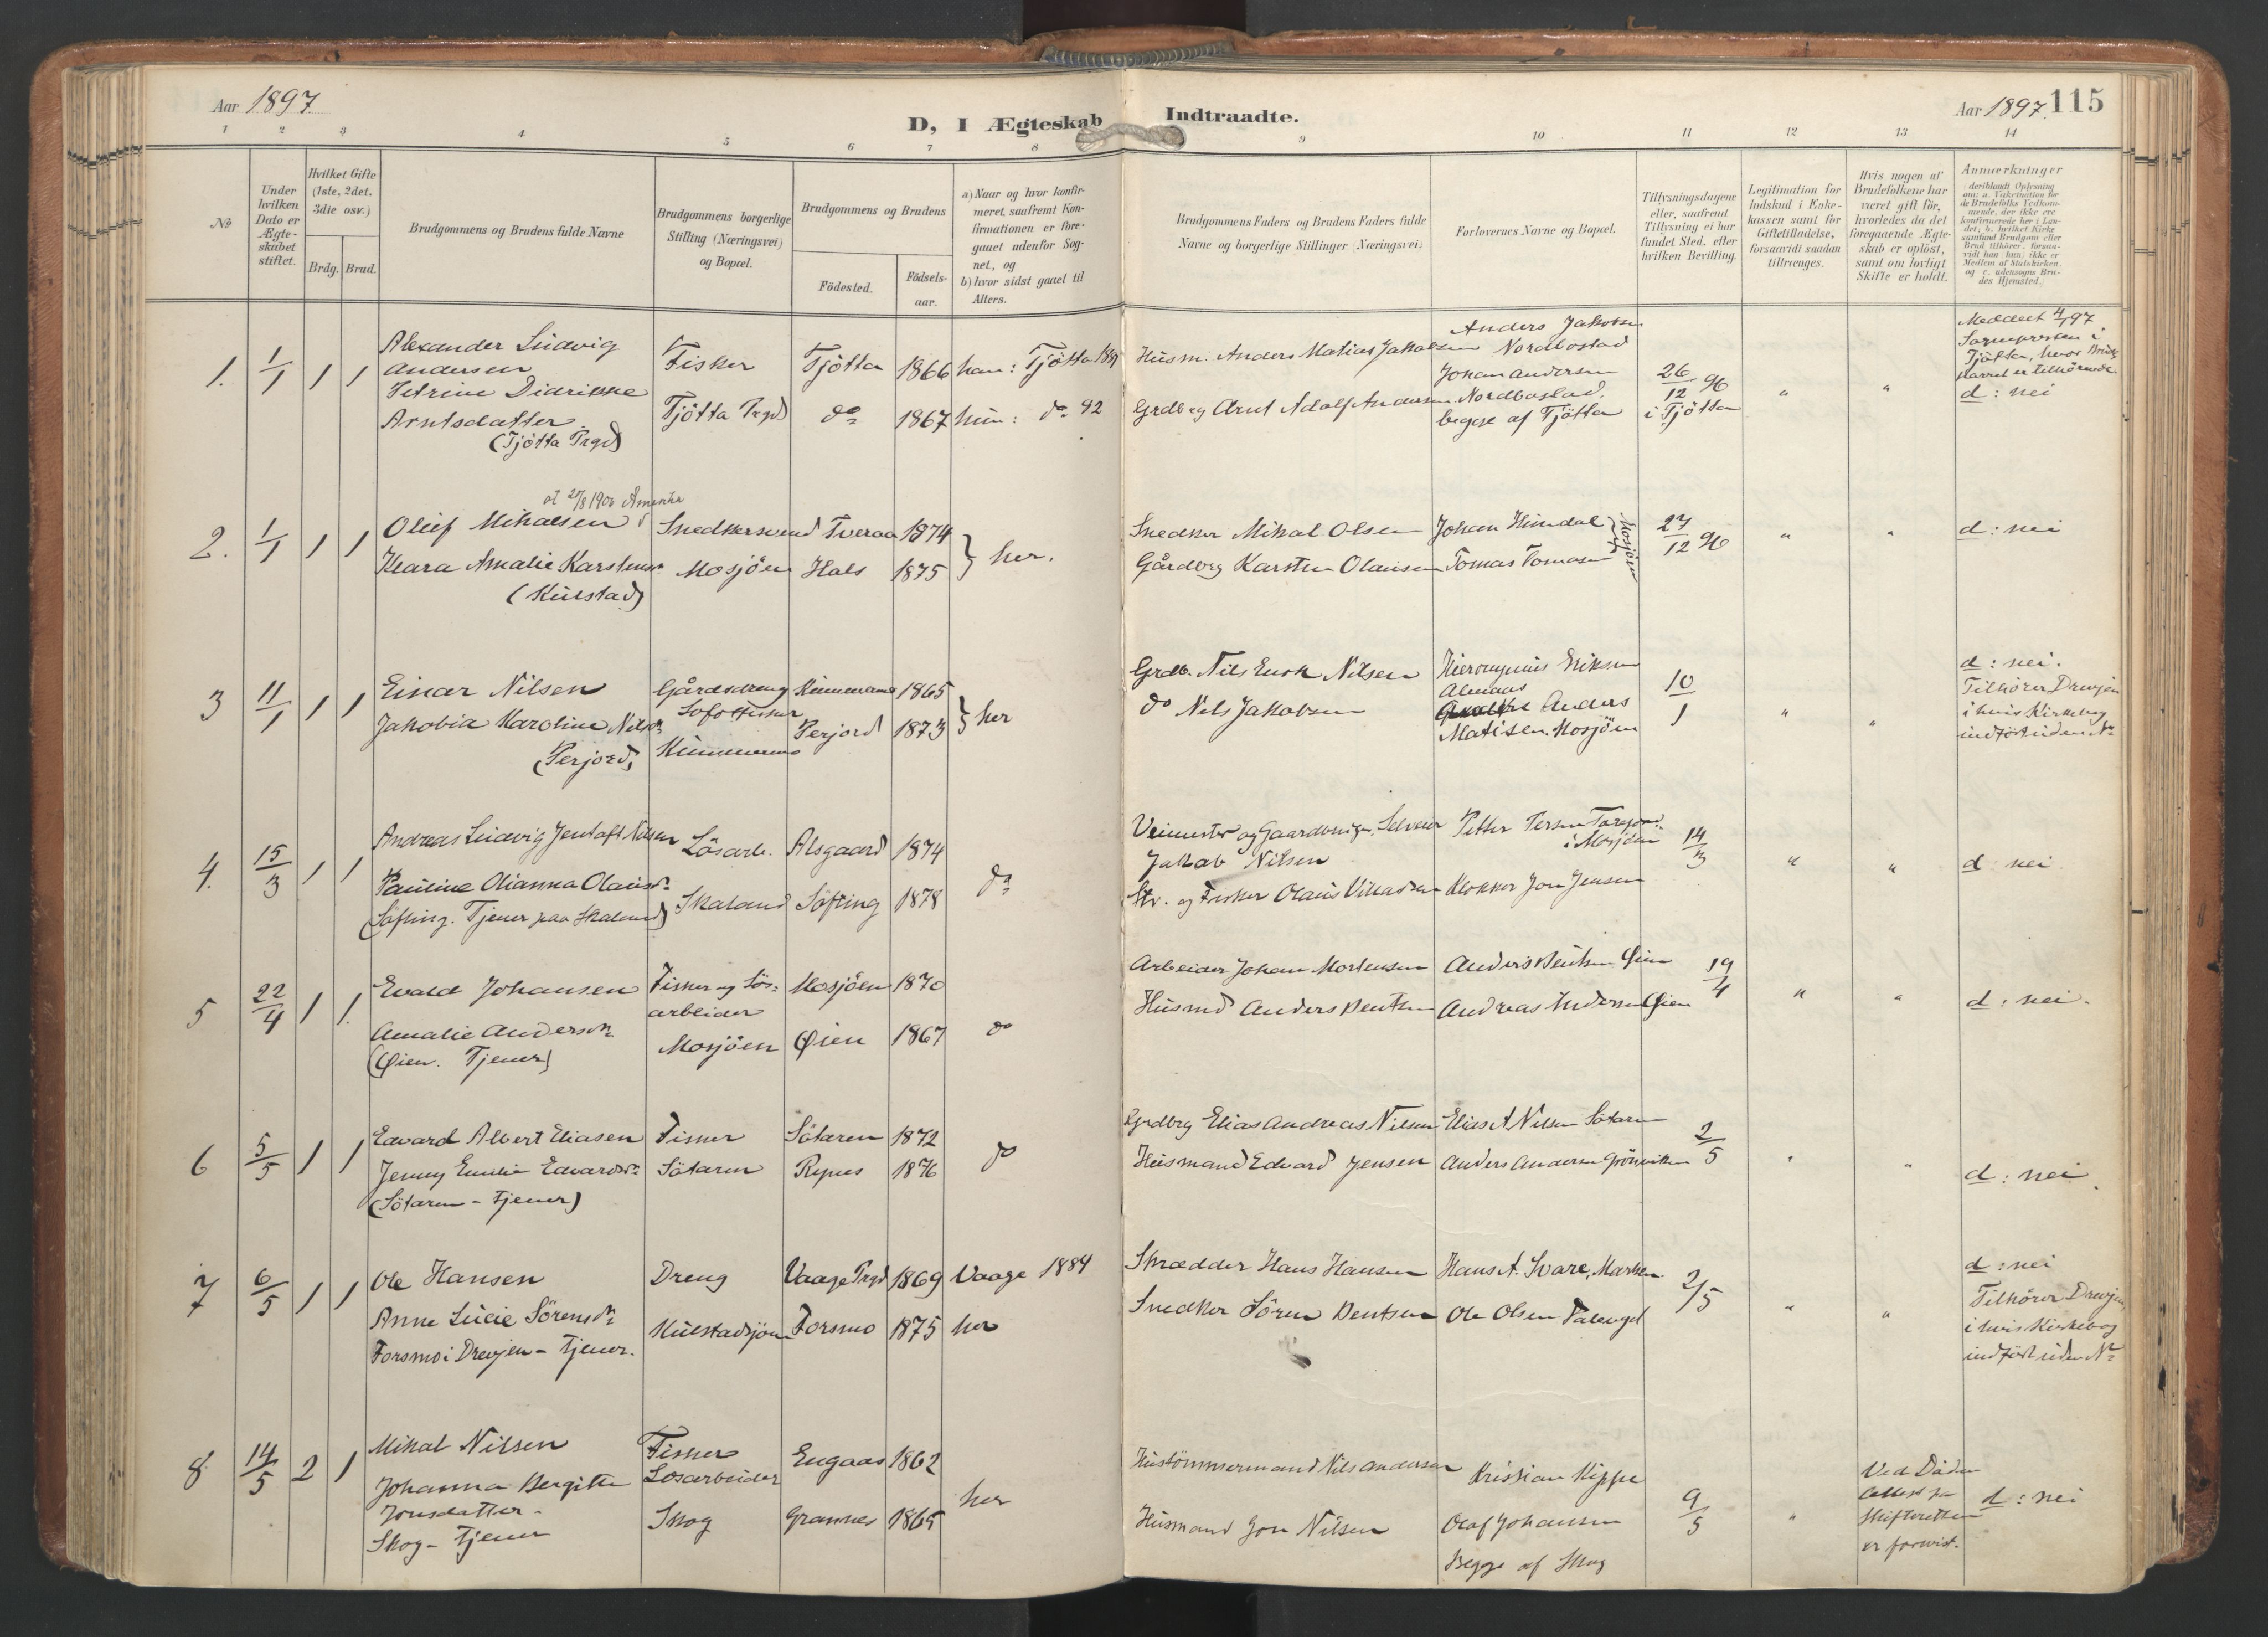 Aar 1897.
D, I Ægteskab Indtraadte.
Aar 1897. 115
1 2 3 4 5 6 7 8 9 10 11 12 13 14
No
Under hvilken Dato er Ægteskabet stiftet.
Hvilket Gifte (1ste, 2det, 3die osv.)
Brdg. Brud.
Brudgommens og Brudens fulde Navne
Brudgommens borgerlige Stilling (Næringsvei) og Bopæl.
Brudgommens og Brudens
Födested.
Födselsaar.
a) Naar og hvor konfirmeret, saafremt Konfirmationen er foregaaet udenfor Sognet, og
b) hvor sidst gaaet til Alters.
Brudgommens Faders og Brudens Faders fulde Navne og borgerlige Stillinger (Næringsvei)
Forlovernes Navne og Bopæl.
Tillysningsdagene eller, saafremt Tillysning ei har fundet Sted, efter hvilken Bevilling.
Legitimation for Indskud i Enkekassen samt for Giftetilladelse, forsaavidt saadan tiltrænges.
Hvis nogen af Brudefolkene har været gift för, hvorledes da det foregaaende Ægteskab er oplöst, samt om lovligt Skifte er holdt.
Anmærkninger (deriblandt Oplysning om: a. Vakcination for de Brudefolks Vedkommende, der ikke ere konfirmerede her i Landet; b. hvilket Kirkesamfund Brudgom eller Brud tilhörer, forsaavidt han (hun) ikke er Medlem af Statskirken, og c. udensogns Brudes Hjemsted.)
1. 1/1 1 1
Alexander Ludvig
Andersen
Petrine Diarikke
Arntsdatter
(Tjötta Prgd)
Fisker
Tjötta Prgd
Tjötta 1866
do 1867
han: Tjötta
hun: do 92
Husm. Anders Matias Jakobsen
Grdbrg Arnt Adolf Andersen
Anders Jakobsen
Nordbostad
Johan Andersen
Nordbostad,
begge af Tjötta
26/12 96
i Tjötta
" "
Meddelt 4/1 97
Sognepresten i
Tjötta, hvor Brude
parret er tilhörende.
d: nei
2. 1/1 1 1
ot 27/8 1900 Amerika
Oluf Mikalsen
Klara Amalie Karstensd.
(Kulstad)
Snedkersvend
Mosjöen
Tveraa 1874
Hals 1875
her.
Snedker Mikal Olsen
Gårdbrg Karsten Olausen
Johan Himdal
Tomas Tomasen
Mosjöen
27/12 96
" "
d: nei
3 11/1 1 1
Einar Nilsen
Jakobia Karoline Nilsd.
(Perjord)
Gårdsdreng
Lofotfisker
1865
Perjord 1873
her
Grdb. Nils Enok Nilsen
do Nils Jakobsen
Hieronymus Eriksen
Almaas
Anders
Matisen. Mosjöen
10/1
" "
d: nei.
Tilhörer Drevjen
i hvis Kirkebog
indfört uden No
4. 15/3 1 1
Andreas Ludvig Jentoft Nilsen
Pauline Olianna Olausd.
(Söfting. Tjener paa Skaland)
Lösarb.
Skaland
Alsgaard 1874
Söfting 1878
do
Veimester og Gaardbruger, Selveier
Jakob Nilsen
Str. og Fisker Olaus
Petter Persen
i Mosjöen
Klokker Jon Jensen
14/3
" "
d: nei
5 22/4 1 1
Evald Johansen
Amalie Andersdr
(Öien. Tjener)
Fisker og lös-
arbeider
Mosjöen
Mosjöen 1870
Öien 1867
do
Arbeider Johan Mortensen
Husmd Anders Bentsen
Anders Bentsen Öien
Andreas Andersen Öien
19/4
" "
d: nei.
6 5/5 1 1
Edvard Albert Eliasen
Jenny Emilie Edvardsdr
(Sötaren - Tjener)
Fisker
Sötaren
Sötaren 1872
Rynes 1876
do
Grdbrg Elias Andreas Nilsen
Husmand Edvard Jensen
Elias A Nilsen Sötaren
Anders Andersen Grönviken
2/5
" "
d: nei.
7 6/5 1 1
Ole Hansen
Anne Lucie Sörensdr
Forsmo i Drevjen - Tjener.
Dreng
Kulstadsjöen
Vaage Prgd 1869
Forsmo 1875
Vaage 1884
her
Skrædder Hans Hansen
Snedker Sören Bentsen
Hans A. Svare, Marken.
Ole Olsen
2/5
" "
d: nei
Tilhörer Drevjen
i hvis Kirkebog
indfört uden No
8. 14/5 2 1
Mikal Nilsen
Johanna Bergitte
Jonsdatter -
Skog - Tjener
Fisker
Lösarbeider
Skog
Engaas 1862
Granmes 1865
her
Hustömmermand Nils Andersen
Husmand Jon Nilsen
Kristian Kippe
Olaf Johansen
Begge af Skog
9/5
"
Ved Döden
Attest fra
Skifteretten
er forevist.
d: nei